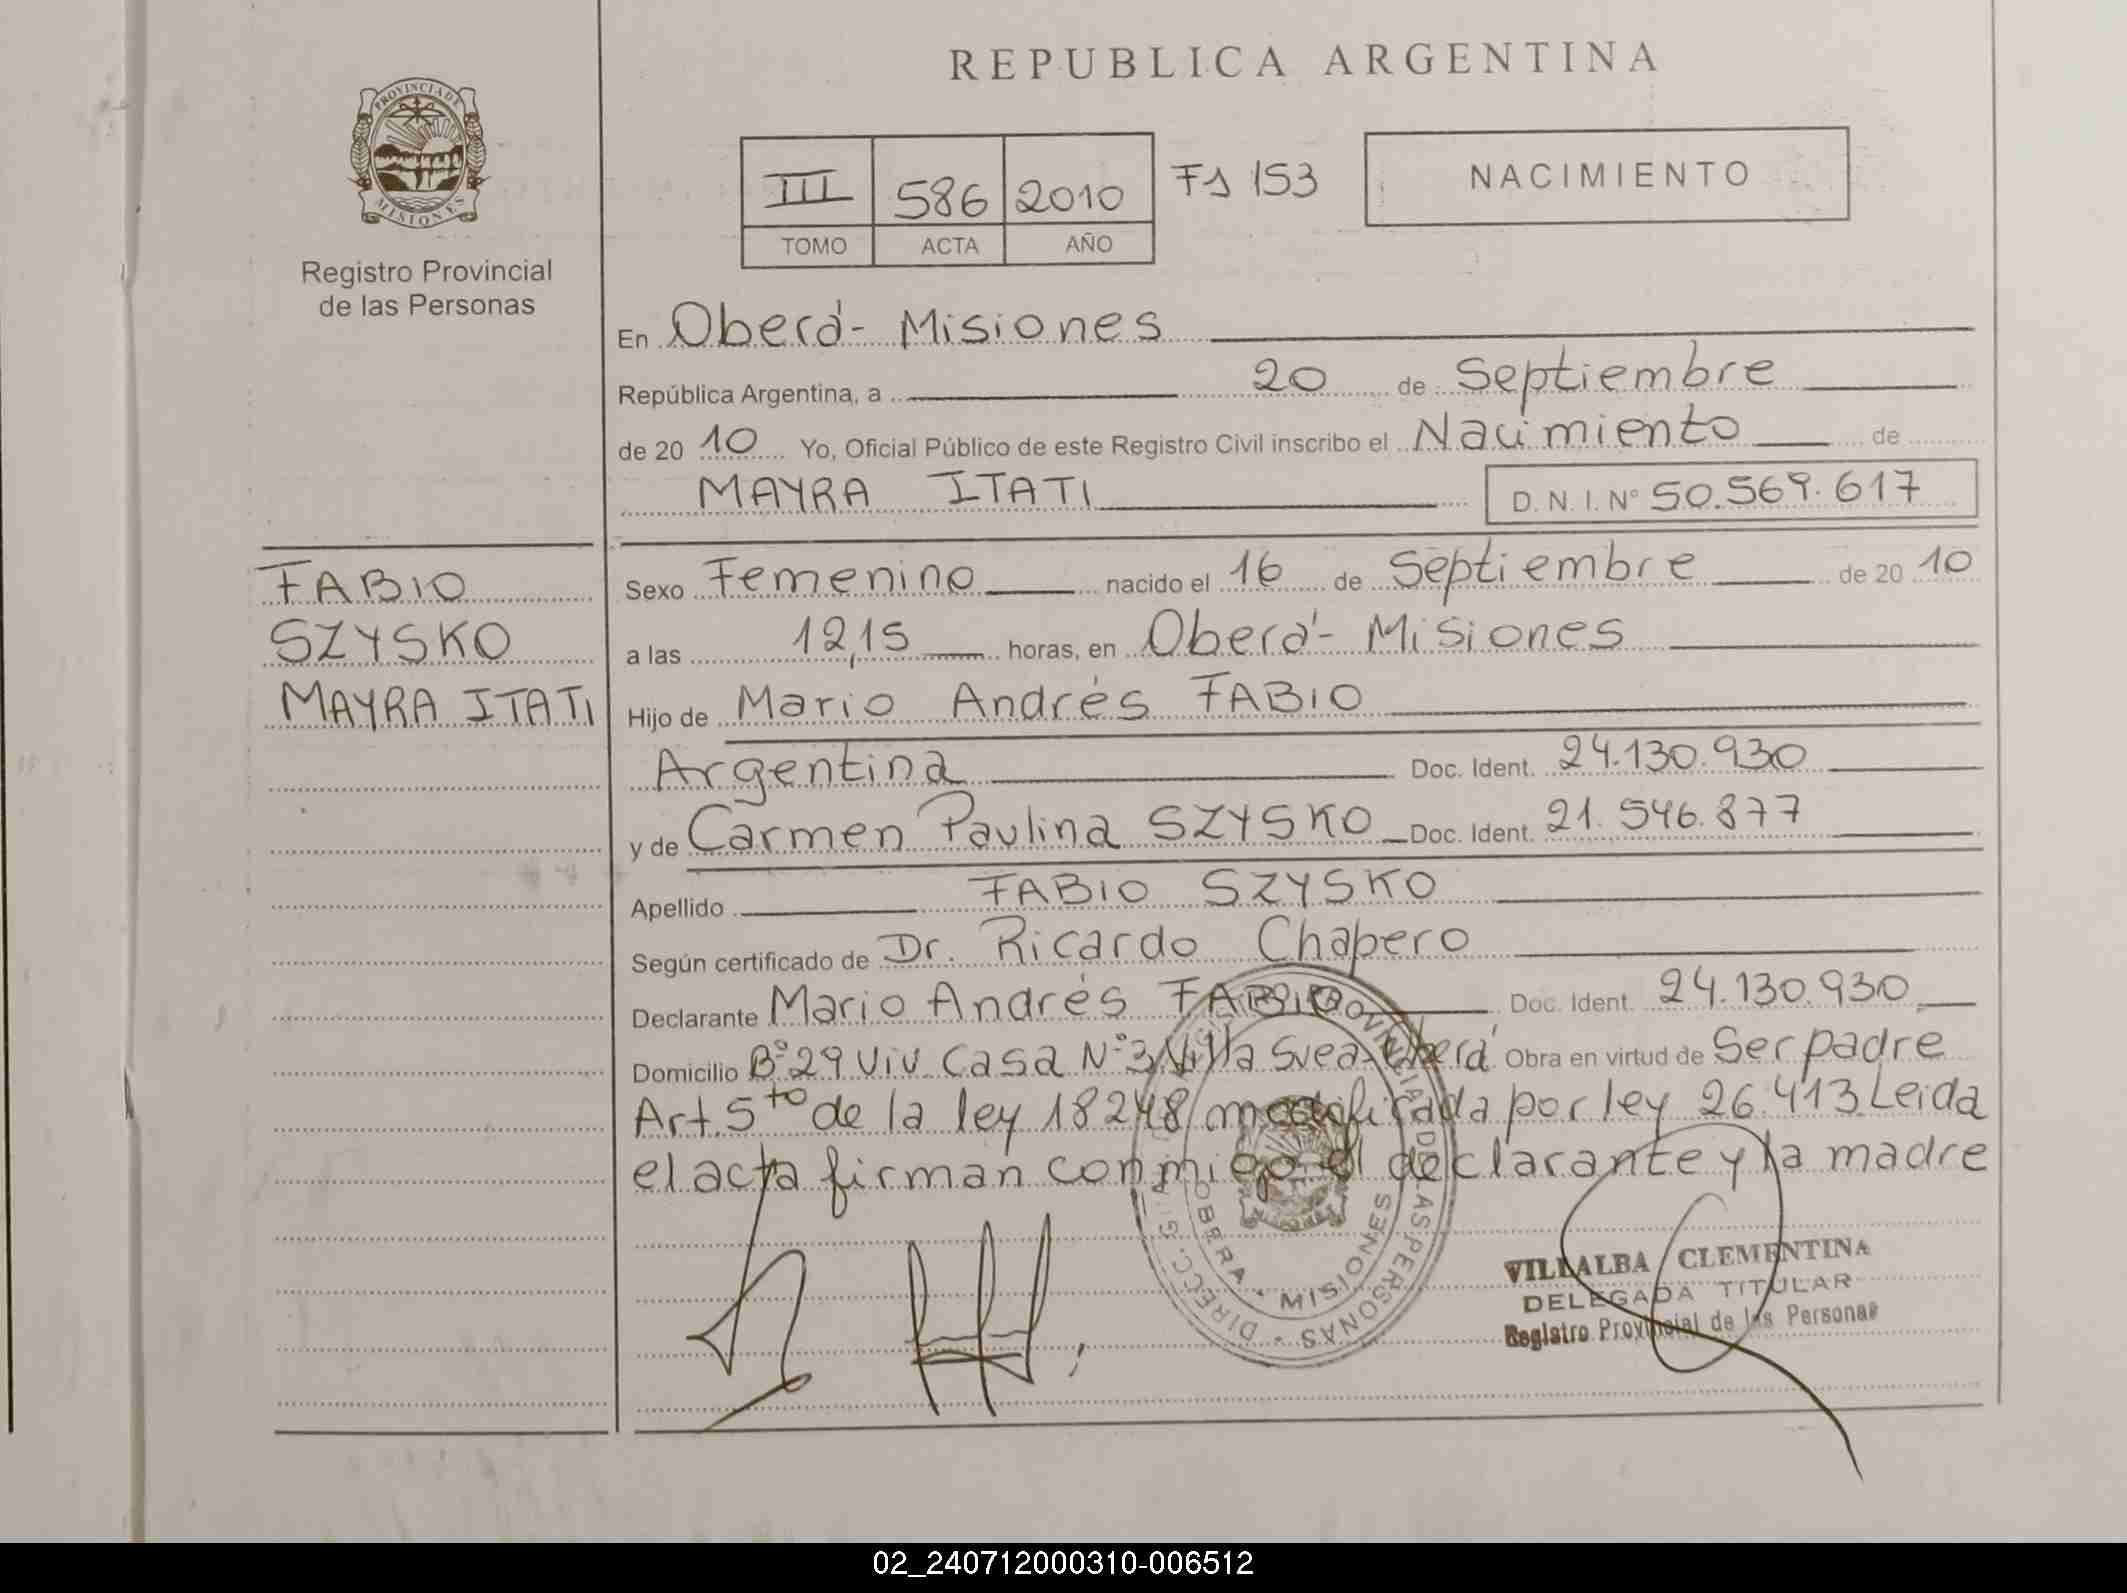 REPUBLICA ARGENTINA
PROVINCIA DE
MISIONES
Registro Provincial
de las Personas
III 586 2010 Fs 153
TOMO ACTA AÑO
NACIMIENTO
En Oberá- Misiones
República Argentina, a 20 de Septiembre
de 20 10 Yo, Oficial Público de este Registro Civil inscribo el Nacimiento de
MAYRA ITATI D. N. I. Nº 50.569.617
FABIO
SZYSKO
MAYRA ITATI
Sexo Femenino nacido el 16 de Septiembre de 20 10
a las 12,15 horas, en Oberá- Misiones
Hijo de Mario Andrés FABIO
Argentina Doc. Ident. 24.130.930
y de Carmen Paulina SZYSKO Doc. Ident. 21.546.877
Apellido FABIO SZYSKO
Según certificado de Dr. Ricardo Chapero
Declarante Mario Andrés FABIO Doc. Ident. 24.130.930
Domicilio Bº 29 Viv. Casa Nº 3 Villa Svea-Oberá Obra en virtud de Ser padre
Art. 5to de la ley 18248 modificada por ley 26.413 Leida
el acta firman conmigo el declarante y la madre
OBERA - MISIONES
VILLALBA CLEMENTINA
DELEGADA TITULAR
Registro Provincial de las Personas
02_240712000310-006512